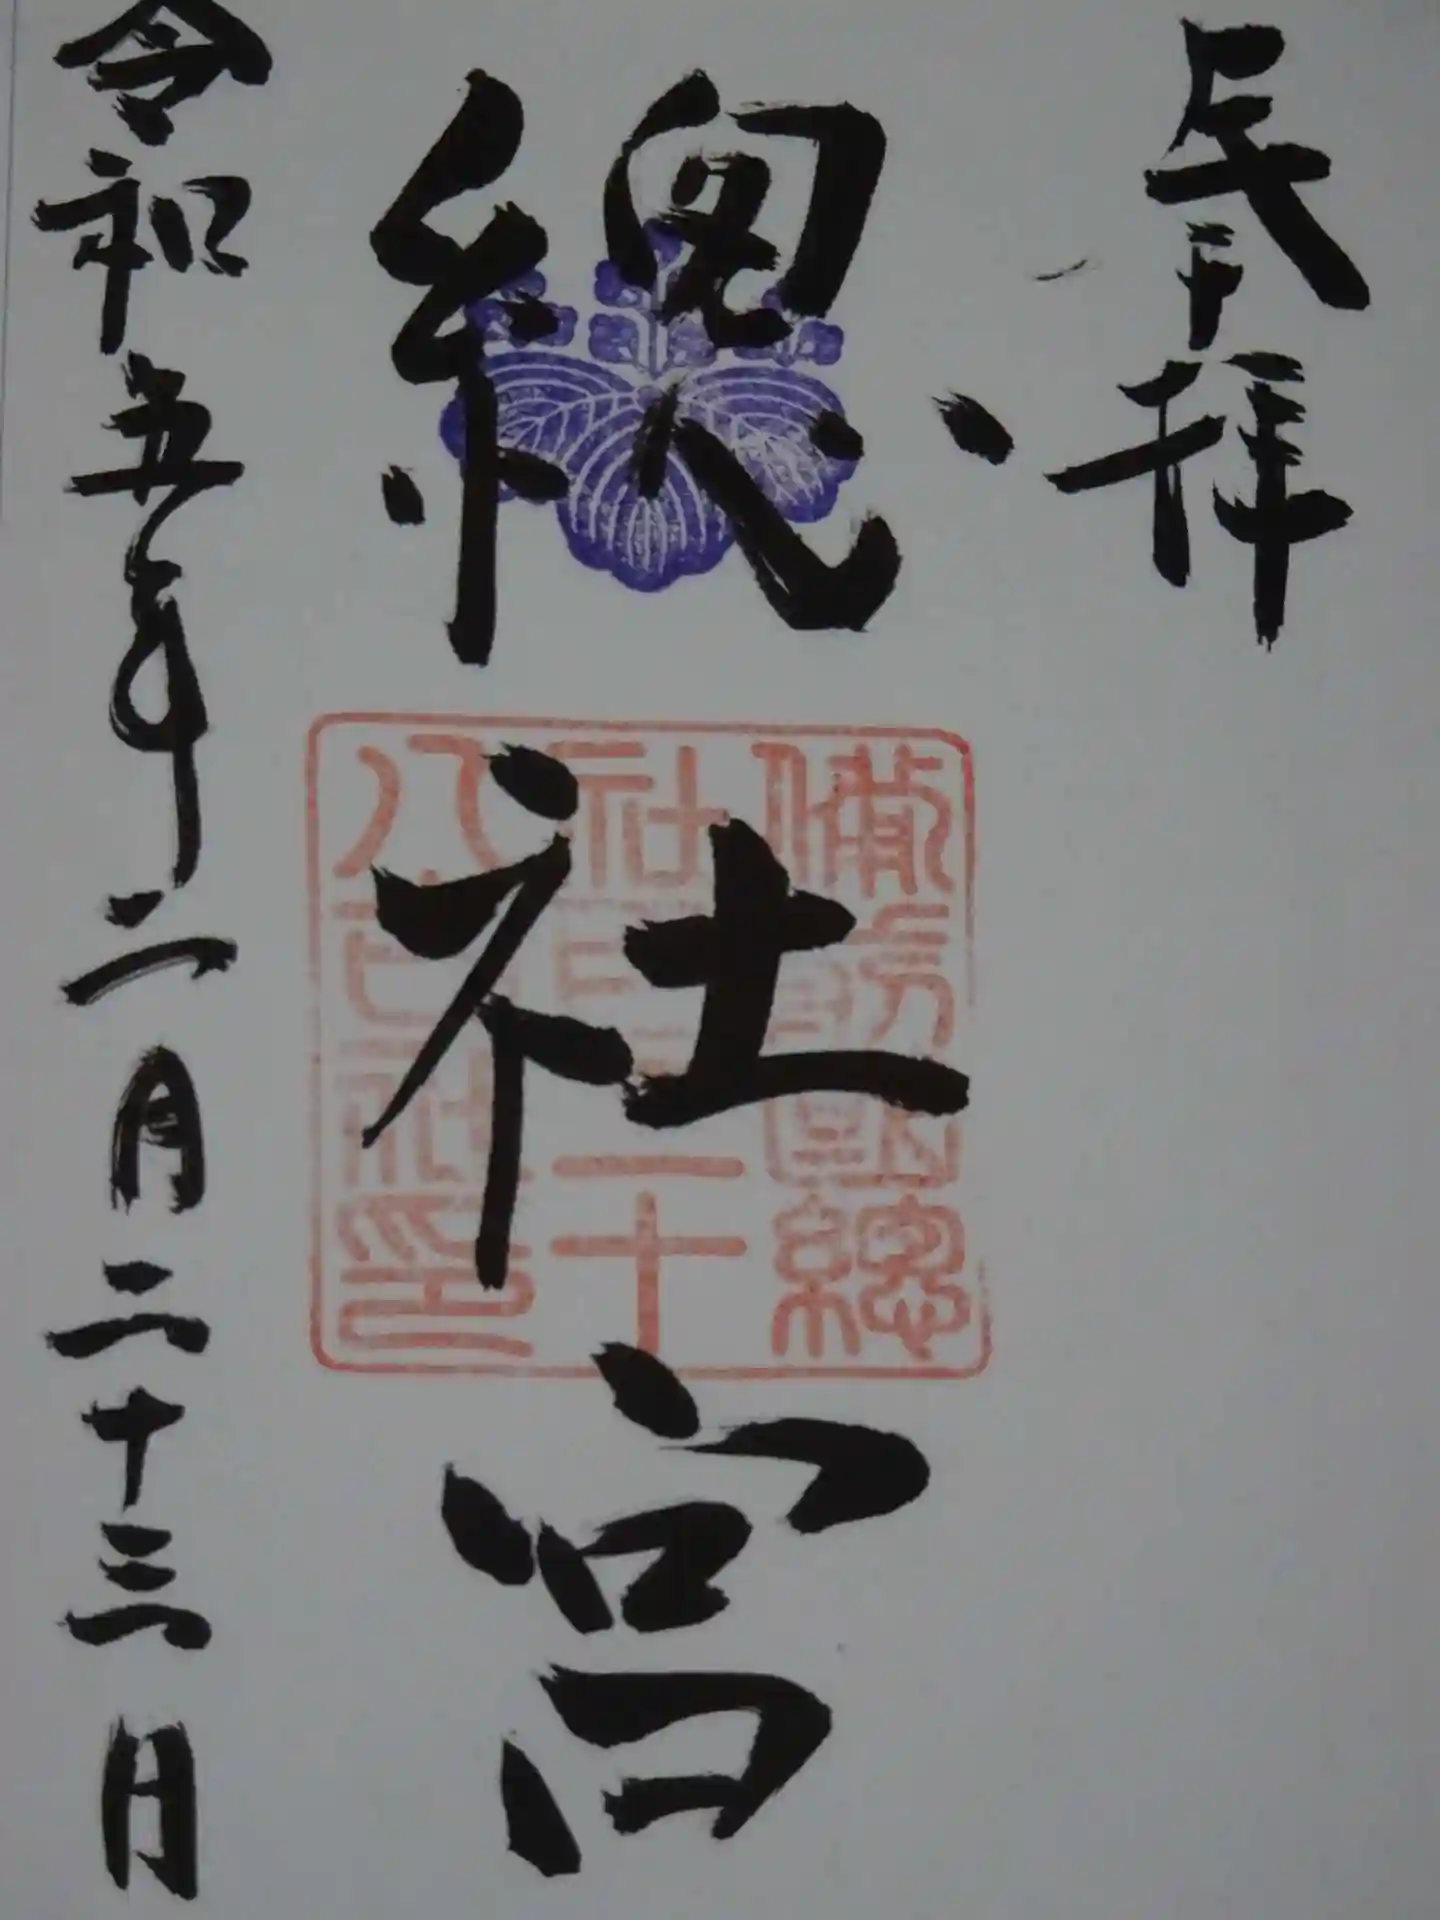 奉拝
總社宮
備前國總
社 二十
八 社印
令和五年二月二十三日